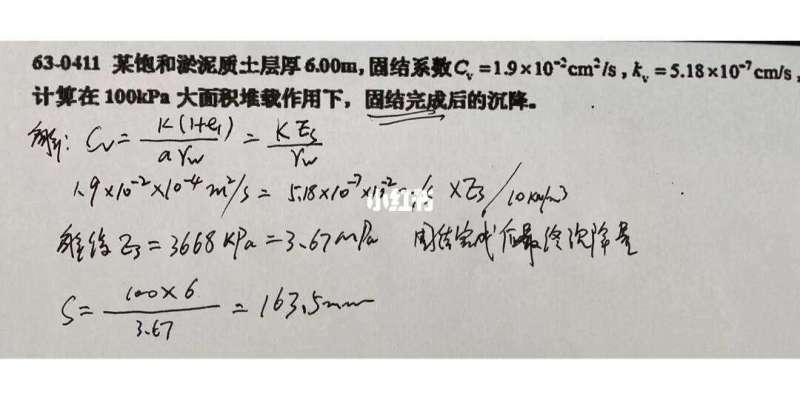 63-0411 某饱和淤泥质土层厚6.00m,固结系数Cᵥ=1.9×10⁻²cm²/s,kᵥ=5.18×10⁻⁷cm/s,
计算在100kPa大面积堆载作用下，固结完成后的沉降。
解: Cᵥ= K(1+e₁)/aγw = KEs/γw
1.9×10⁻²×10⁻⁴m²/s = 5.18×10⁻⁷×10⁻² ×Es/10kN/m³
小红书
解得Es=3668kPa=3.67mPa 固结完成后最终沉降量
S= 100×6/3.67 = 163.5mm